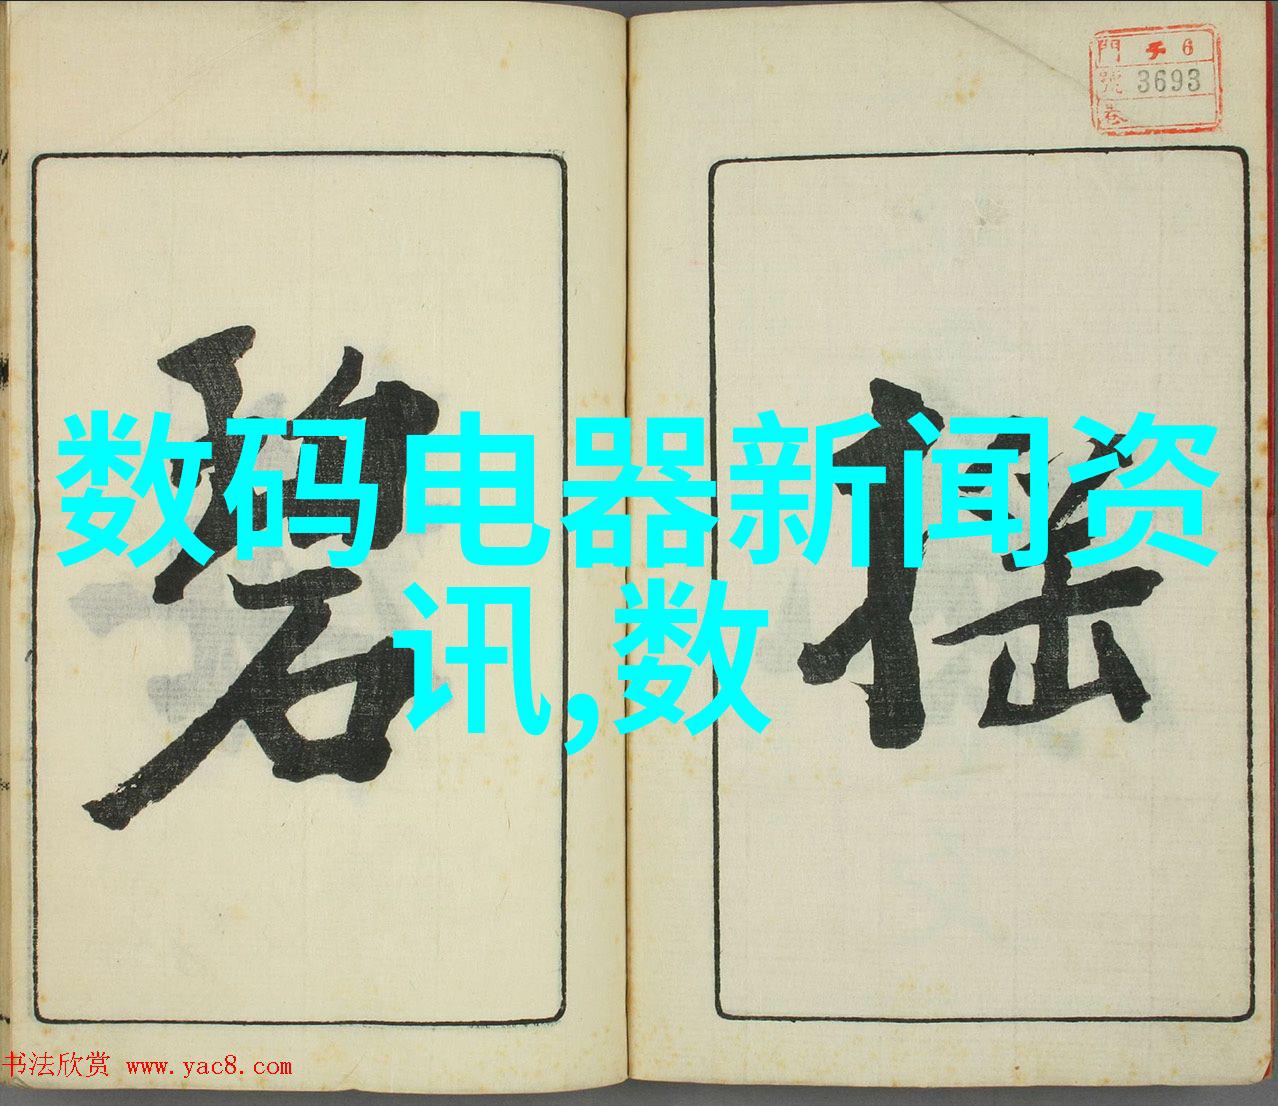 門 6
號 3693
卷
搖
碧
数码电器新闻资
讯,数
书法欣赏 www.yac8.com